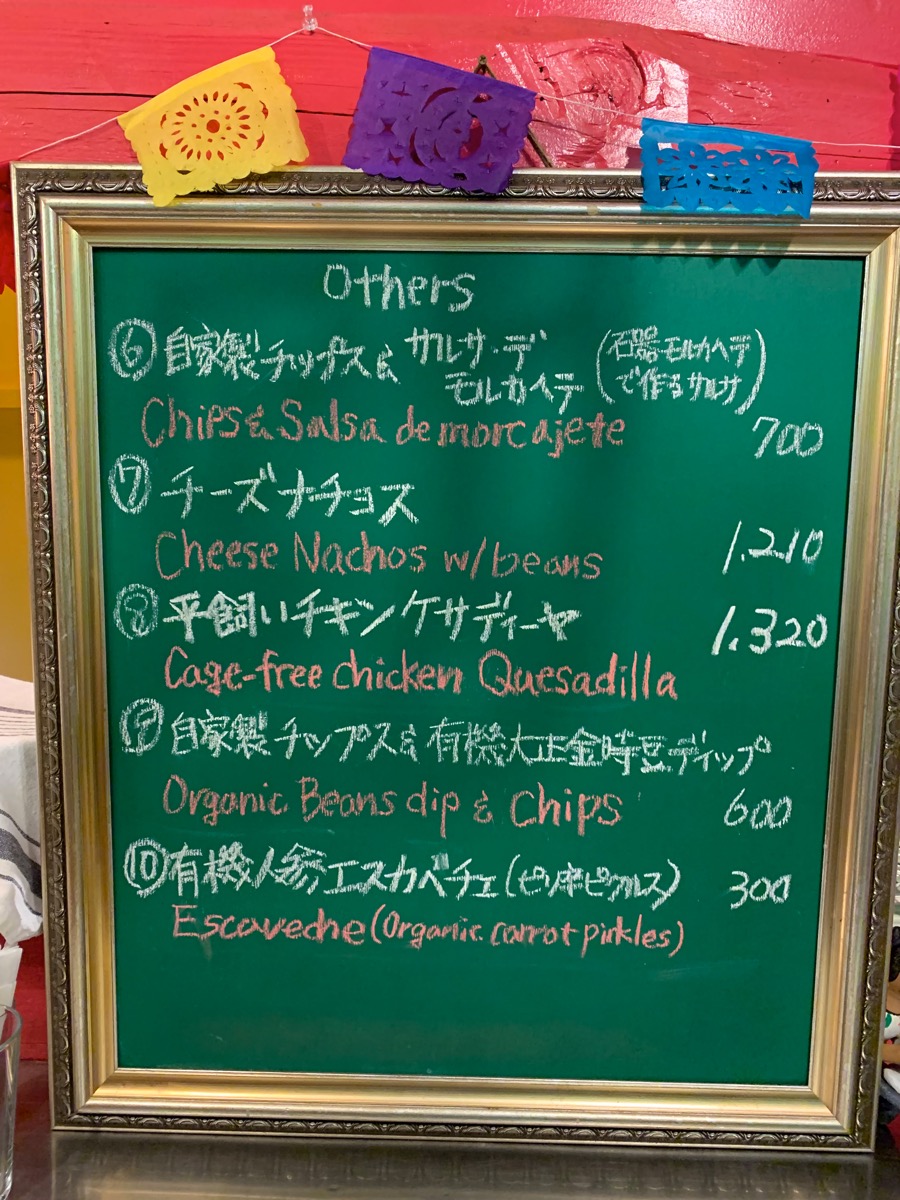 Others
⑥ 自家製チップス& サルサ・デ モルカヘテ (石器モルカヘテで作るサルサ)
Chips & Salsa de morcajete 700
⑦ チーズナチョス
Cheese Nachos w/beans 1.210
⑧ 平飼いチキンケサディーヤ 1.320
Cage-free chicken Quesadilla
⑨ 自家製チップス&有機大正金時豆ディップ
Organic Beans dip & Chips 600
⑩ 有機人参エスカベチェ(ピリ辛ピクルス) 300
Escaveche (Organic carrot pickles)